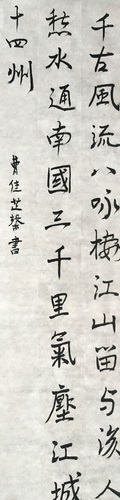 千古風流八咏樓江山留与後人
愁水通南國三千里氣壓江城
十四州
費佳芷馨書